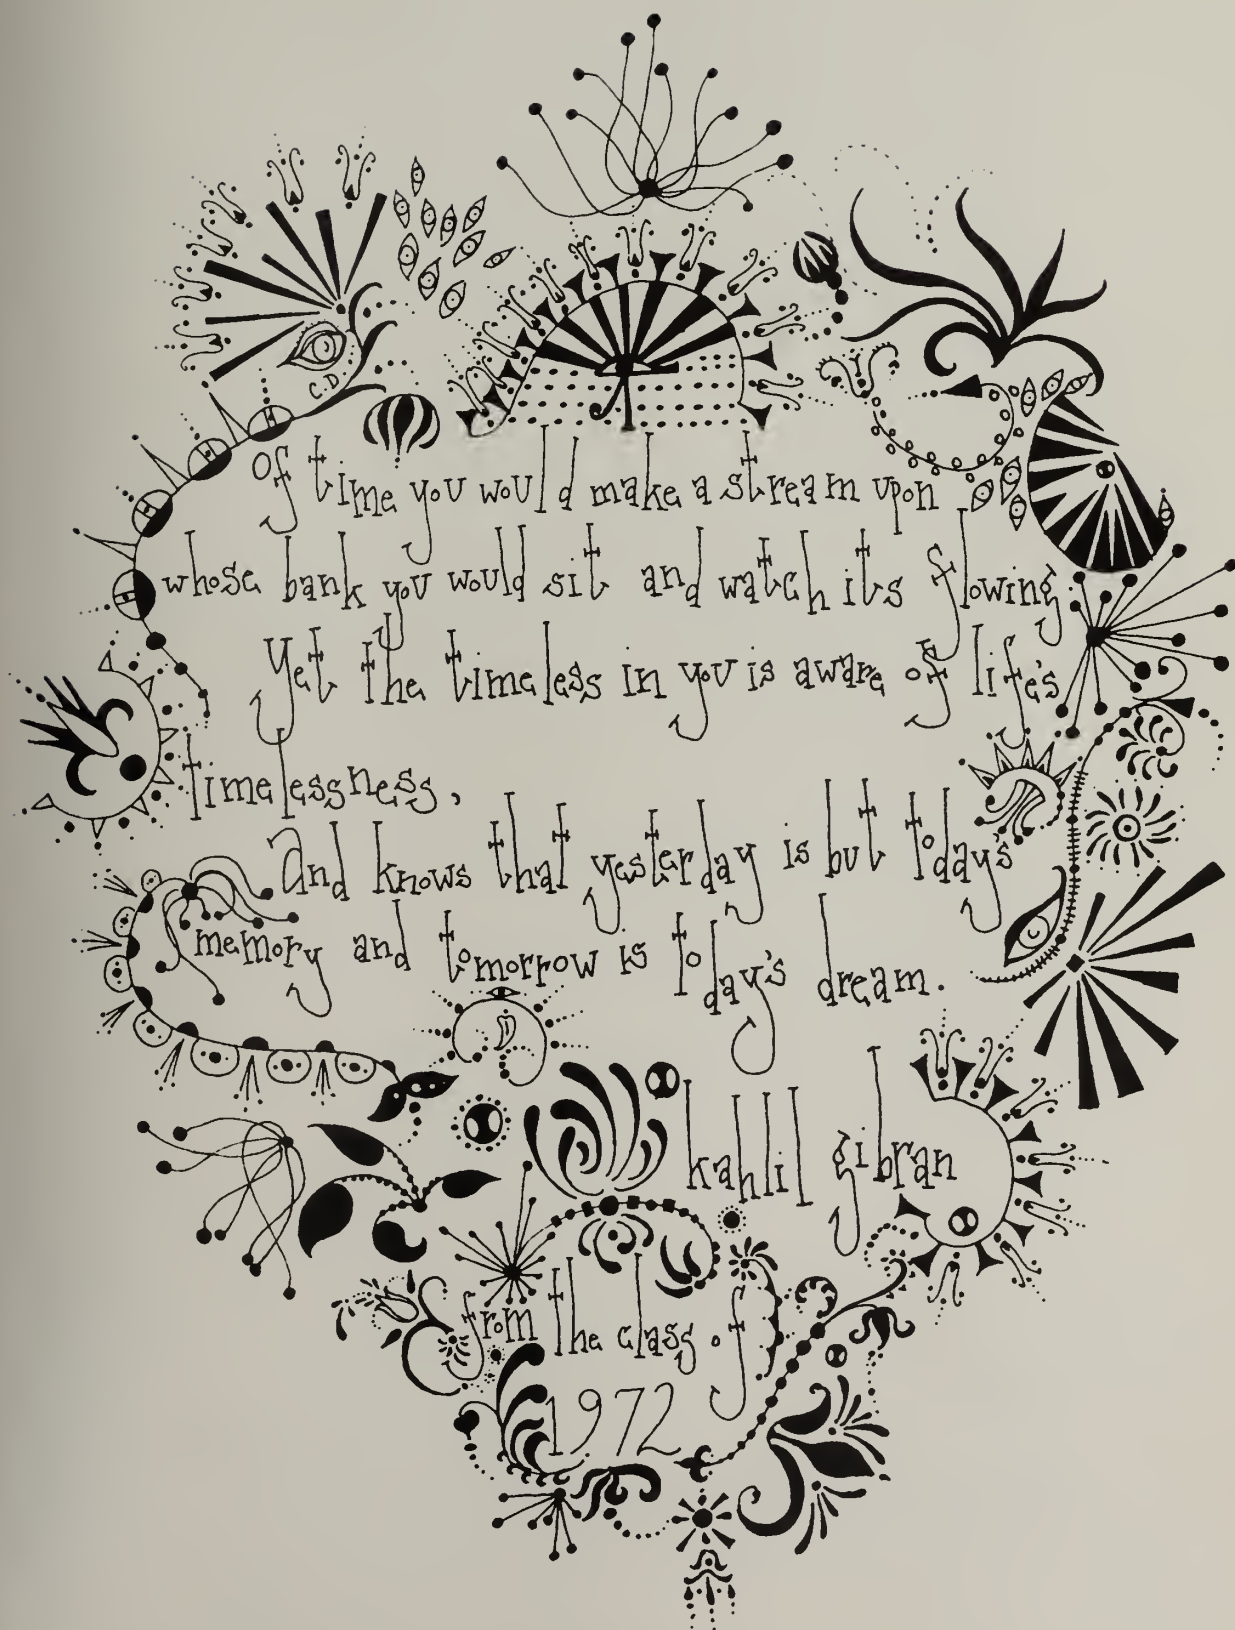 C.D.
Of time you would make a stream upon
whose bank you would sit and watch its flowing.
Yet the timeless in you is aware of life's
timelessness,
And knows that yesterday is but today's
memory and tomorrow is today's dream.
kahlil gibran
from the class of
1972